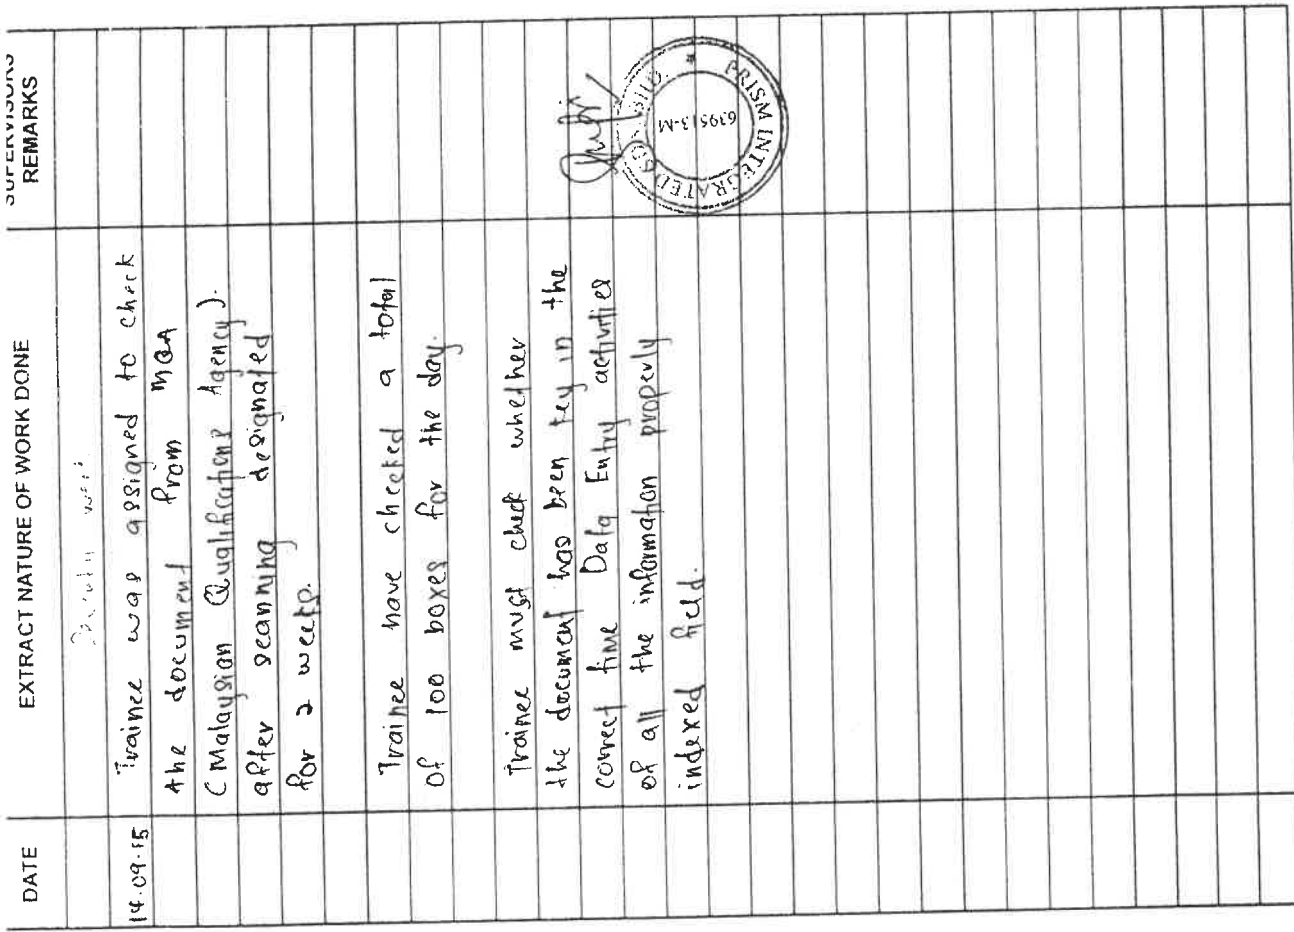 DATE
EXTRACT NATURE OF WORK DONE
SUPERVISORS
REMARKS
14.09.15
Trainee was assigned to check
the document from MQA
(Malaysian Qualifications Agency).
after scanning designated
for 2 weeks.
Trainee have checked a total
of 100 boxes for the day.
Trainee must check whether
the document has been key in the
correct time Data Entry activities
of all the information properly
indexed field.
PRISM INTEGRATED SDN. BHD. *
639513-M